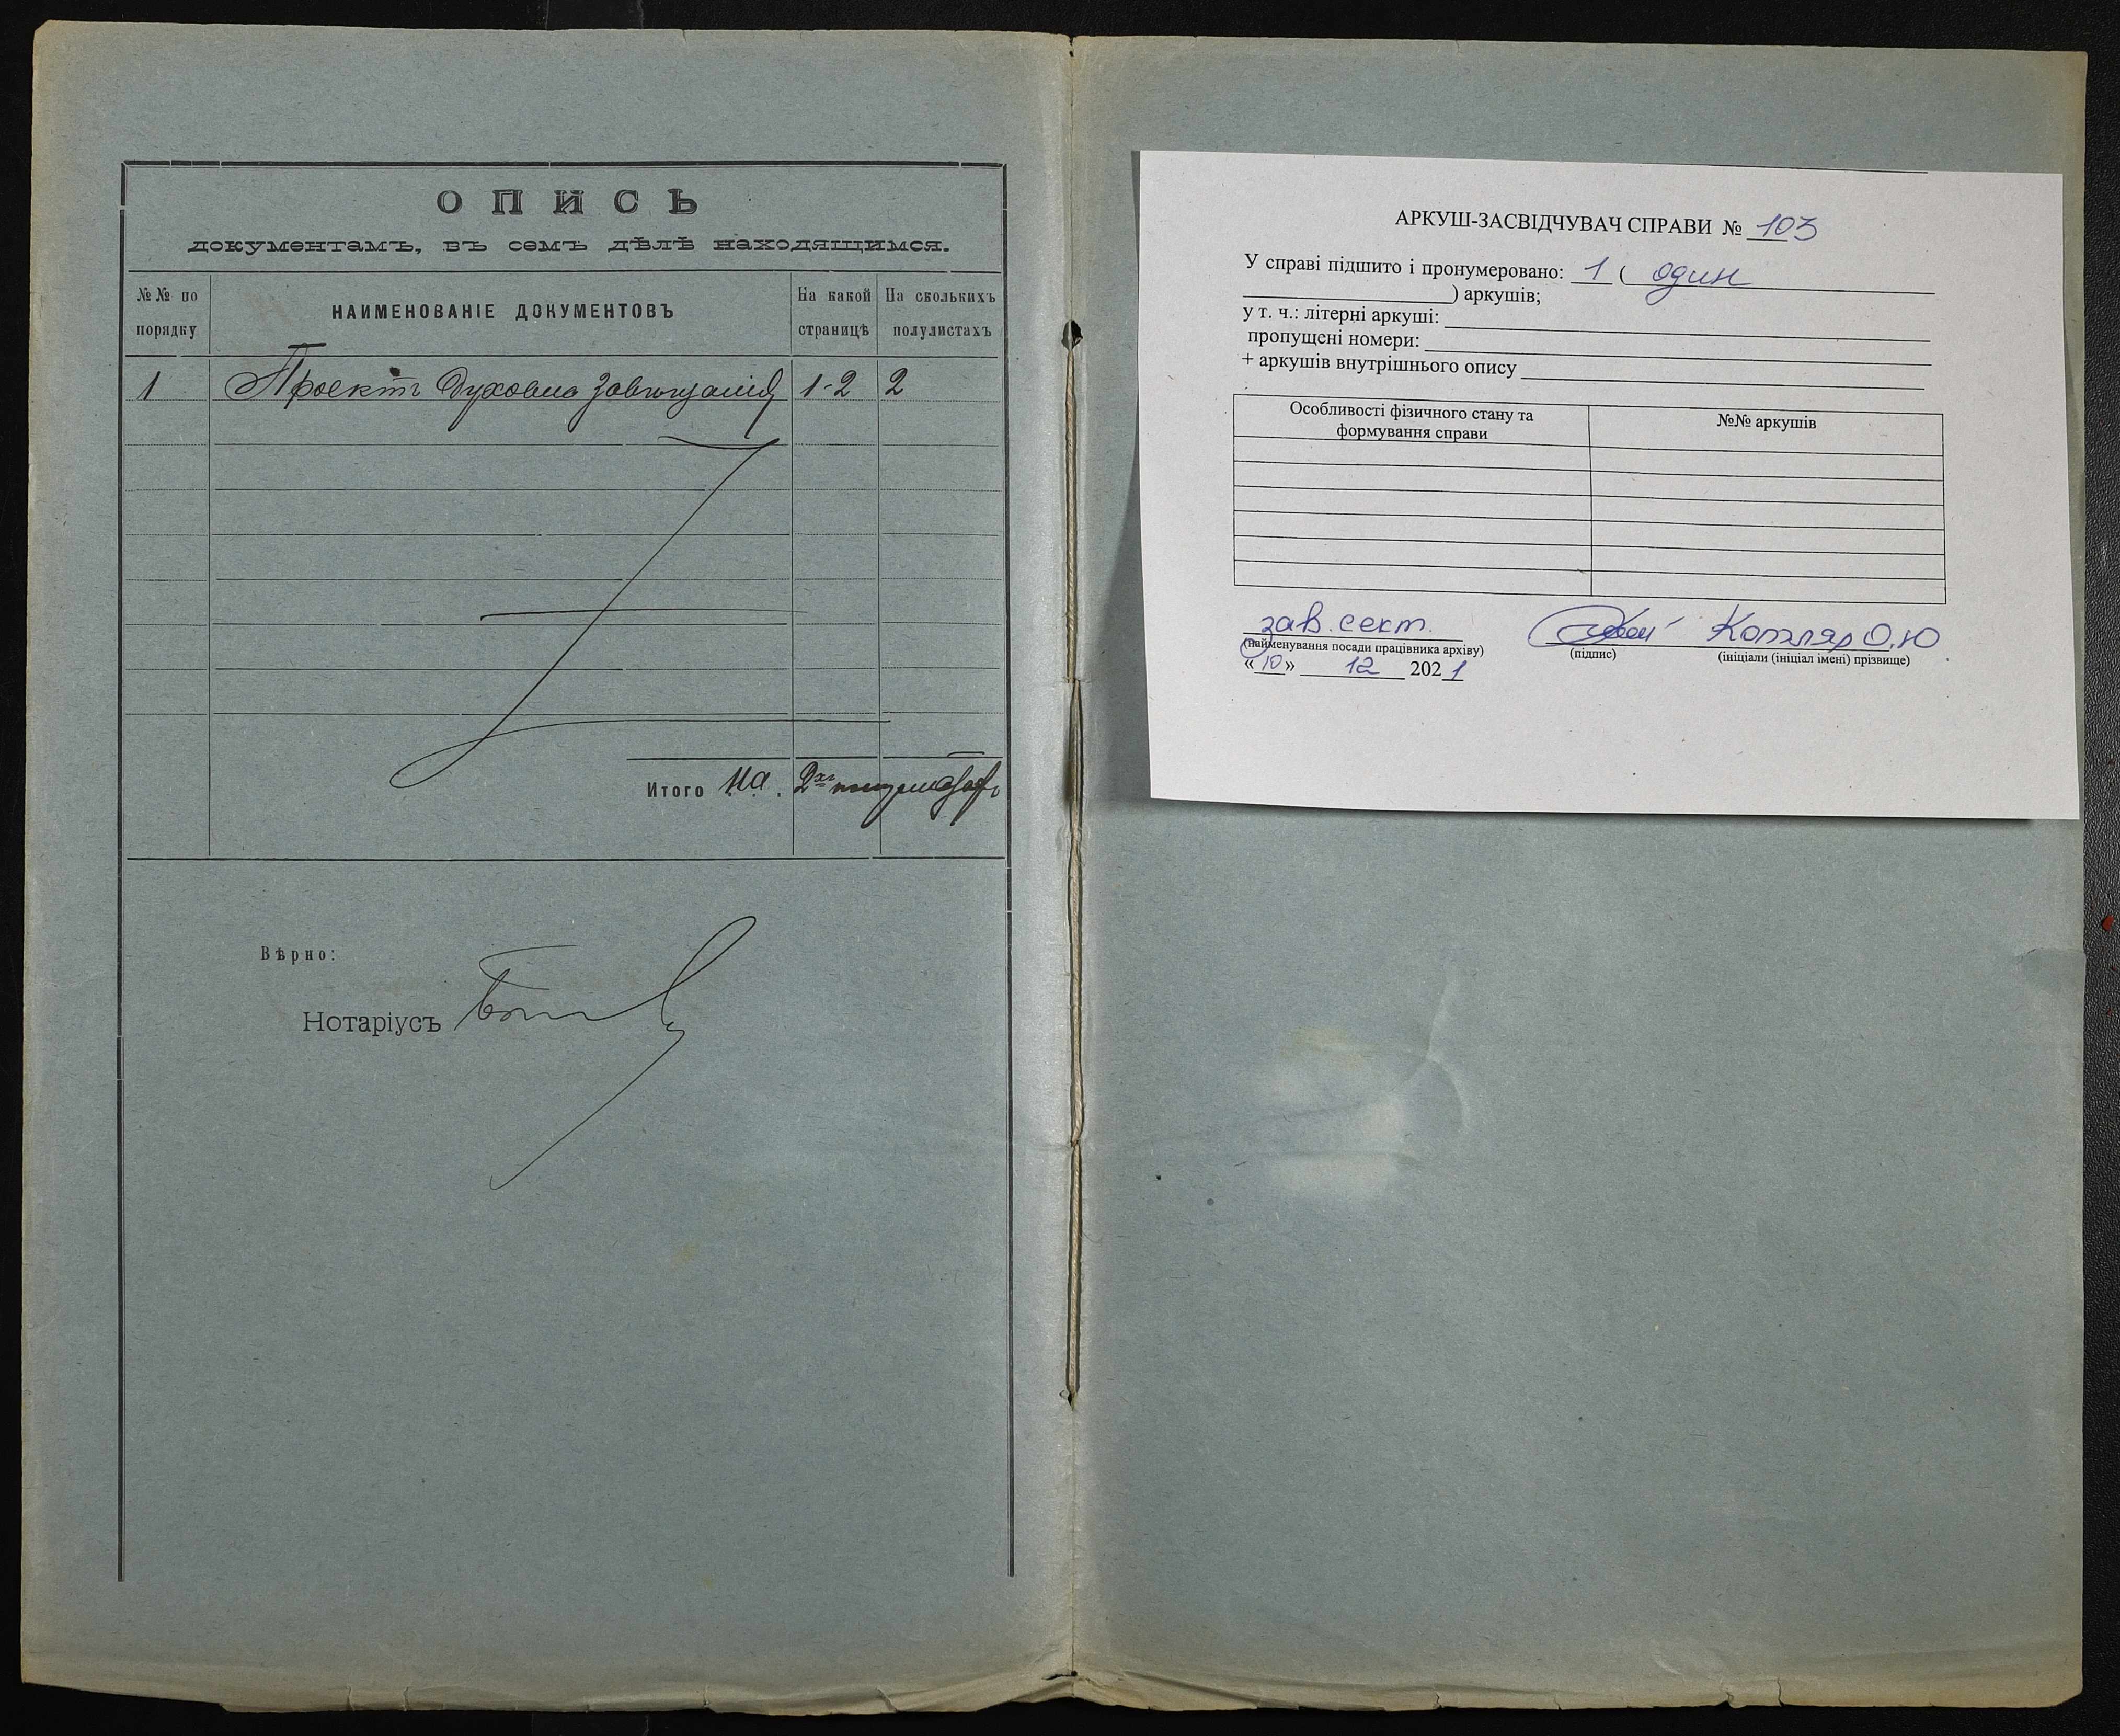 ОПИСЬ
документамъ, въ семъ дѣлѣ находящимся.
№№ по порядку
НАИМЕНОВАНІЕ ДОКУМЕНТОВЪ
На какой страницѣ
На сколькихъ полулистахъ
1 Проектъ духовно завѣщанія 1-2 2
Итого на 2хъ полулистахъ
Вѣрно:
Нотаріусъ
АРКУШ-ЗАСВІДЧУВАЧ СПРАВИ № 103
У справі підшито і пронумеровано: 1 ( один
) аркушів;
у т. ч.: літерні аркуші:
пропущені номери:
+ аркушів внутрішнього опису
Особливості фізичного стану та формування справи
№№ аркушів
зав. сект. Котляр О.Ю
(найменування посади працівника архіву) (підпис) (ініціали (ініціал імені) прізвище)
« 10 » 12 2021